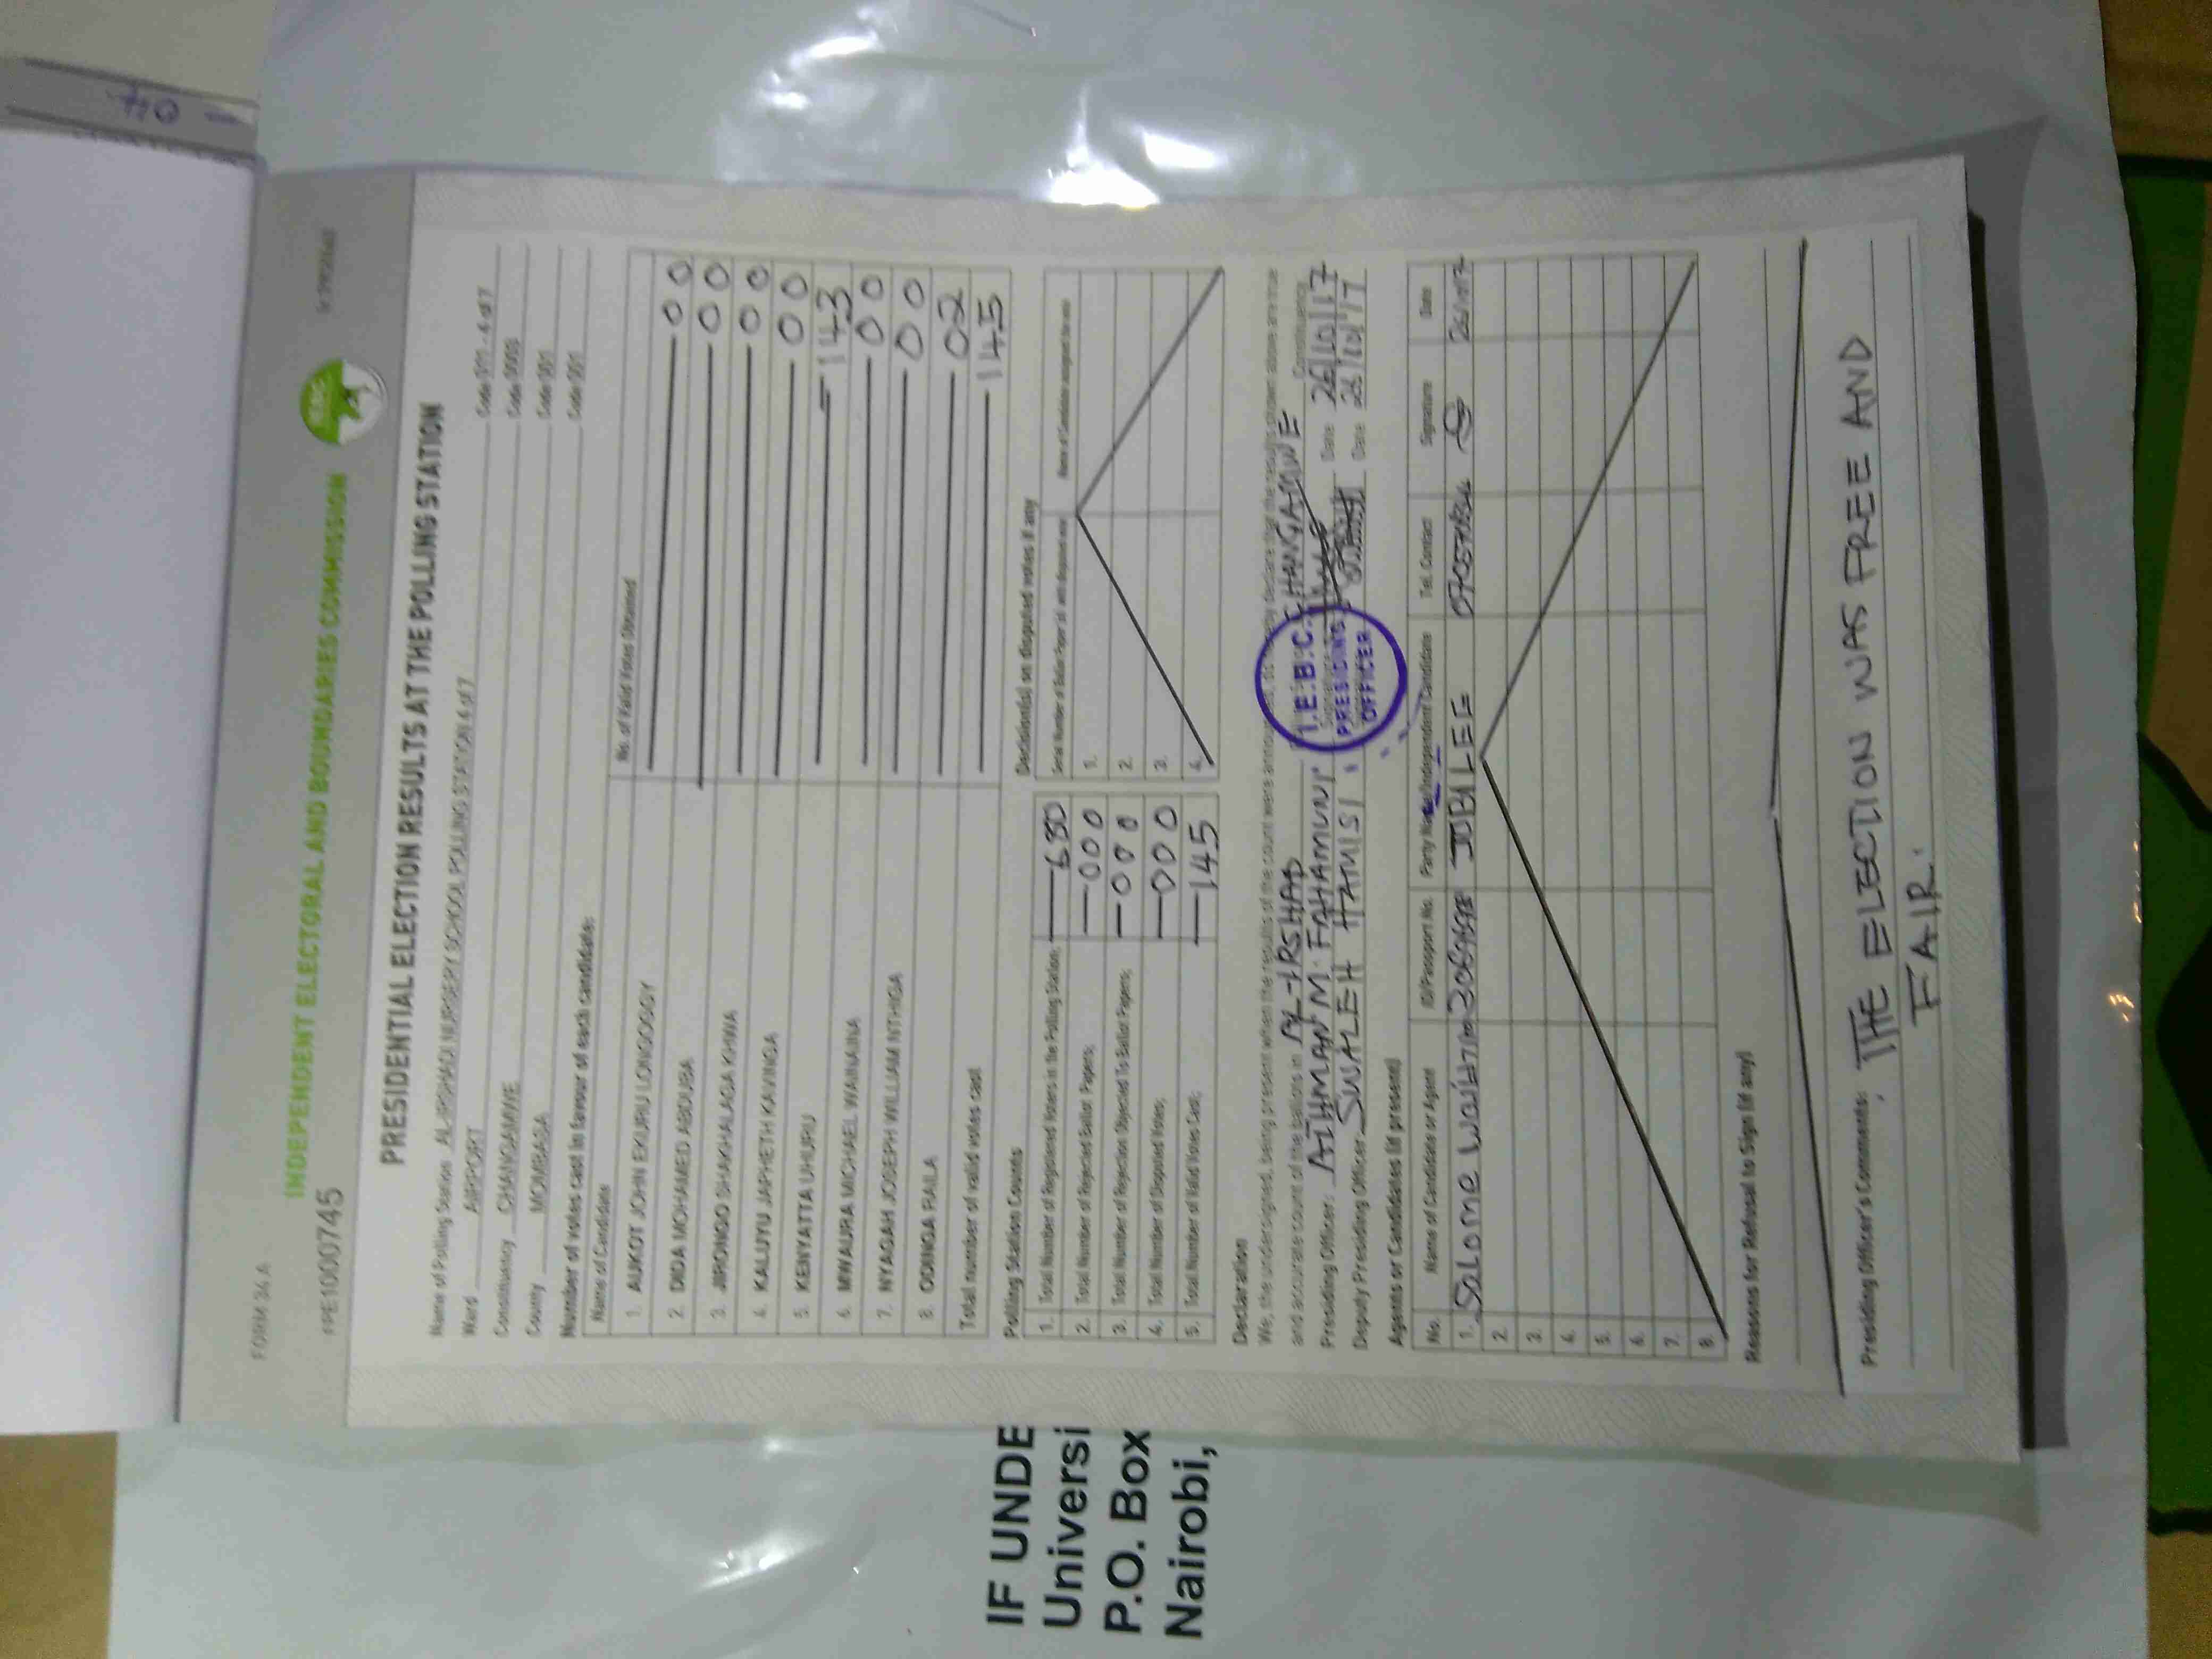 - 04
FORM 34 A
INDEPENDENT ELECTORAL AND BOUNDARIES COMMISSION
IEBC
PRESIDENTIAL ELECTION RESULTS AT THE POLLING STATION
Name of Polling Station AL-IRSHADI NURSERY SCHOOL POLLING STATION 6 of 7 Code 011 - 6 of 7
Ward AIRPORT
Constituency CHANGAMWE Code 001
County MOMBASA Code 001
Number of votes cast in favour of each candidate:
Name of Candidate No. of Valid Votes Obtained
1. AUKOT JOHN EKURU LONGOGGY 00
2. DIDA MOHAMED ABDUBA 00
3. JIRONGO SHAKHALAGA KHWA 00
4. KALUYU JAPHETH KAVINGA 00
5. KENYATTA UHURU 143
6. MWAURA MICHAEL WAINAINA 00
7. NYAGAH JOSEPH WILLIAM NTHIGA 00
8. ODINGA RAILA 02
Total number of valid votes cast 145
Polling Station Counts
1. Total Number of Registered Voters in the Polling Station; 680
2. Total Number of Rejected Ballot Papers; 000
3. Total Number of Rejection Objected To Ballot Papers; 000
4. Total Number of Disputed Votes; 000
5. Total Number of Valid Votes Cast; 145
Decision(s) on disputed votes if any
1.
2.
3.
4.
Declaration
We, the undersigned, being present when the results of the count were declare that the results shown above are true
and accurate count of the ballots in AL-IRSHAD CHANGAMWE Constituency
Presiding Officer: ATHMAN M. FAHAMUNI Date 26/10/17
Deputy Presiding Officer: SWALEH HAMISI Date 26/10/17
I.E.B.C.
PRESIDING
OFFICER
Agents or Candidates (if present)
No. Name of Candidate or Agent ID/Passport No. Party Name/Independent Candidate Tel. Contact Signature Date
1. Salome JUBILEE
2.
3.
4.
5.
6.
7.
8.
Reasons for Refusal to Sign (if any)
Presiding Officer's Comments: THE ELECTION WAS FREE AND
FAIR.
IF UNDE
Universi
P.O. Box
Nairobi,